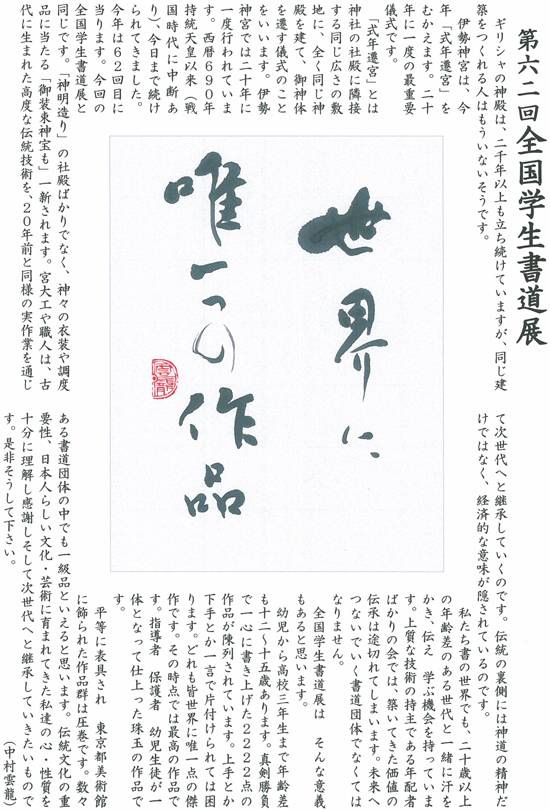 第六二回全国学生書道展
ギリシャの神殿は、二千年以上も立ち続けていますが、同じ建
築をつくれる人はもういないそうです。
伊勢神宮は、今
年「式年遷宮」を
むかえます。二十
年に一度の最重要
儀式です。
「式年遷宮」とは
神社の社殿に隣接
する同じ広さの敷
地に、全く同じ神
殿を建て、御神体
を遷す儀式のこと
をいいます。伊勢
神宮では二十年に
一度行われていま
す。西暦６９０年
持統天皇以来（戦
国時代に中断あ
り）、今日まで続け
られてきました。
今年は６２回目に
当ります。今回の
全国学生書道展と
同じです。「神明造り」の社殿ばかりでなく、神々の衣装や調度
品に当たる「御装束神宝も」一新されます。宮大工や職人は、古
代に生まれた高度な伝統技術を、２０年前と同様の実作業を通じ
世界に
唯一つの作品
雲龍
て次世代へと継承していくのです。伝統の裏側には神道の精神だ
けではなく、経済的な意味が隠されているのです。
私たち書の世界でも、二十歳以上
の年齢差のある世代と一緒に汗を
かき、伝え　学ぶ機会を持っていま
す。上質な技術の持主である年配者
ばかりの会では、築いてきた価値の
伝承は途切れてしまいます。未来へ
つないでいく書道団体でなくては
なりません。
全国学生書道展は　そんな意義
もあると思います。
幼児から高校三年生まで年齢差
も十二～十五歳あります。真剣勝負
で一心に書き上げた２２２２点の
作品が陳列されています。上手とか
下手とか一言で片付けられては困
ります。どれも皆世界に唯一点の傑
作です。その時点では最高の作品で
す。指導者　保護者　幼児生徒が一
体となって仕上った珠玉の作品で
す。
平等に表具され　東京都美術館
に飾られた作品群は圧巻です。数々
ある書道団体の中でも一級品といえると思います。伝統文化の重
要性、日本人らしい文化・芸術に育まれてきた私達の心・性質を
十分に理解し感謝しそして次世代へと継承していきたいもので
す。是非そうして下さい。
（中村雲龍）